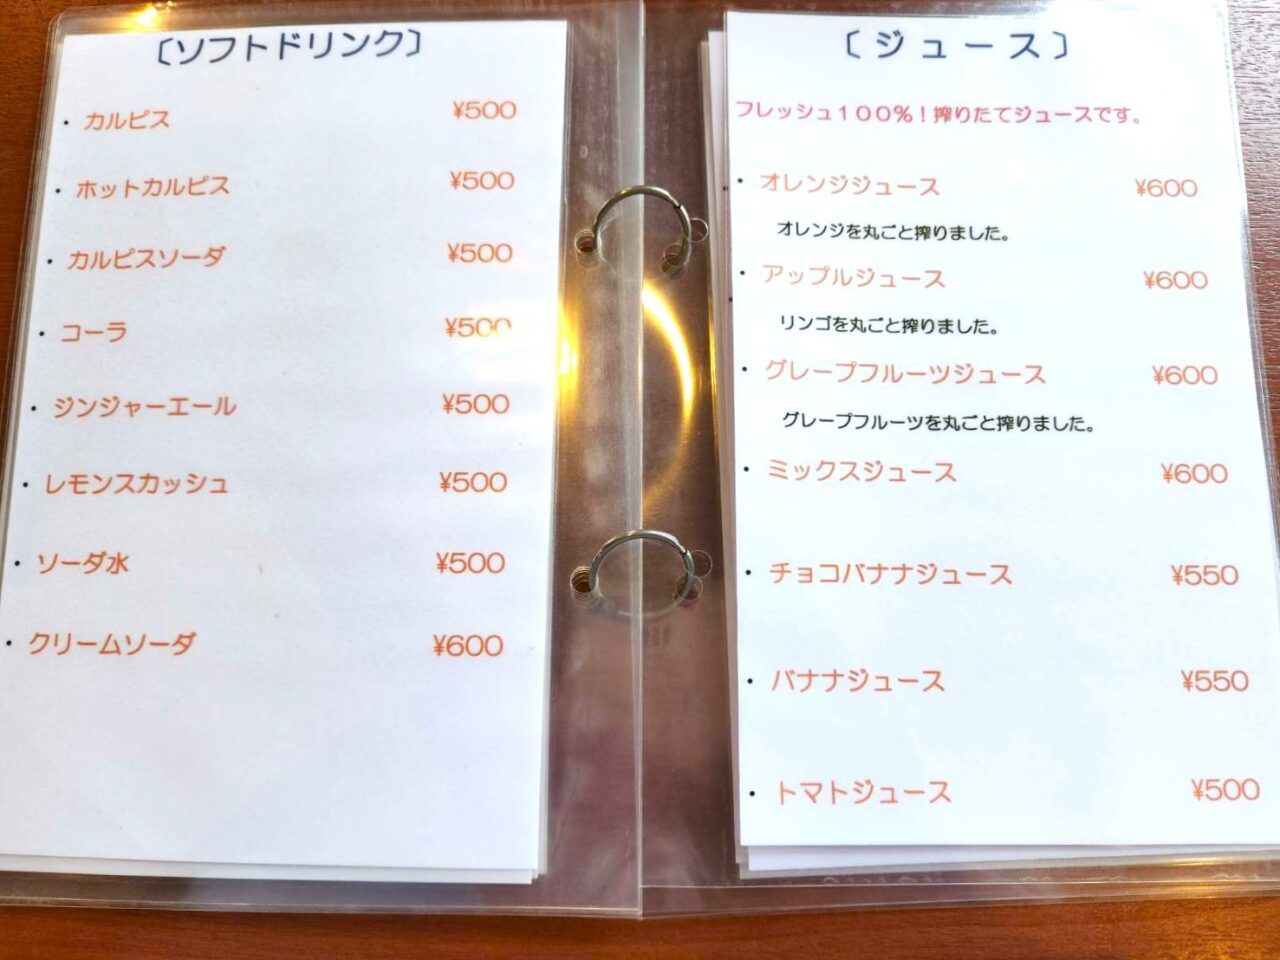 〔ソフトドリンク〕
・カルピス ¥500
・ホットカルピス ¥500
・カルピスソーダ ¥500
・コーラ ¥500
・ジンジャーエール ¥500
・レモンスカッシュ ¥500
・ソーダ水 ¥500
・クリームソーダ ¥600
〔ジュース〕
フレッシュ１００％！搾りたてジュースです。
・オレンジジュース ¥600
オレンジを丸ごと搾りました。
・アップルジュース ¥600
リンゴを丸ごと搾りました。
・グレープフルーツジュース ¥600
グレープフルーツを丸ごと搾りました。
・ミックスジュース ¥600
・チョコバナナジュース ¥550
・バナナジュース ¥550
・トマトジュース ¥500